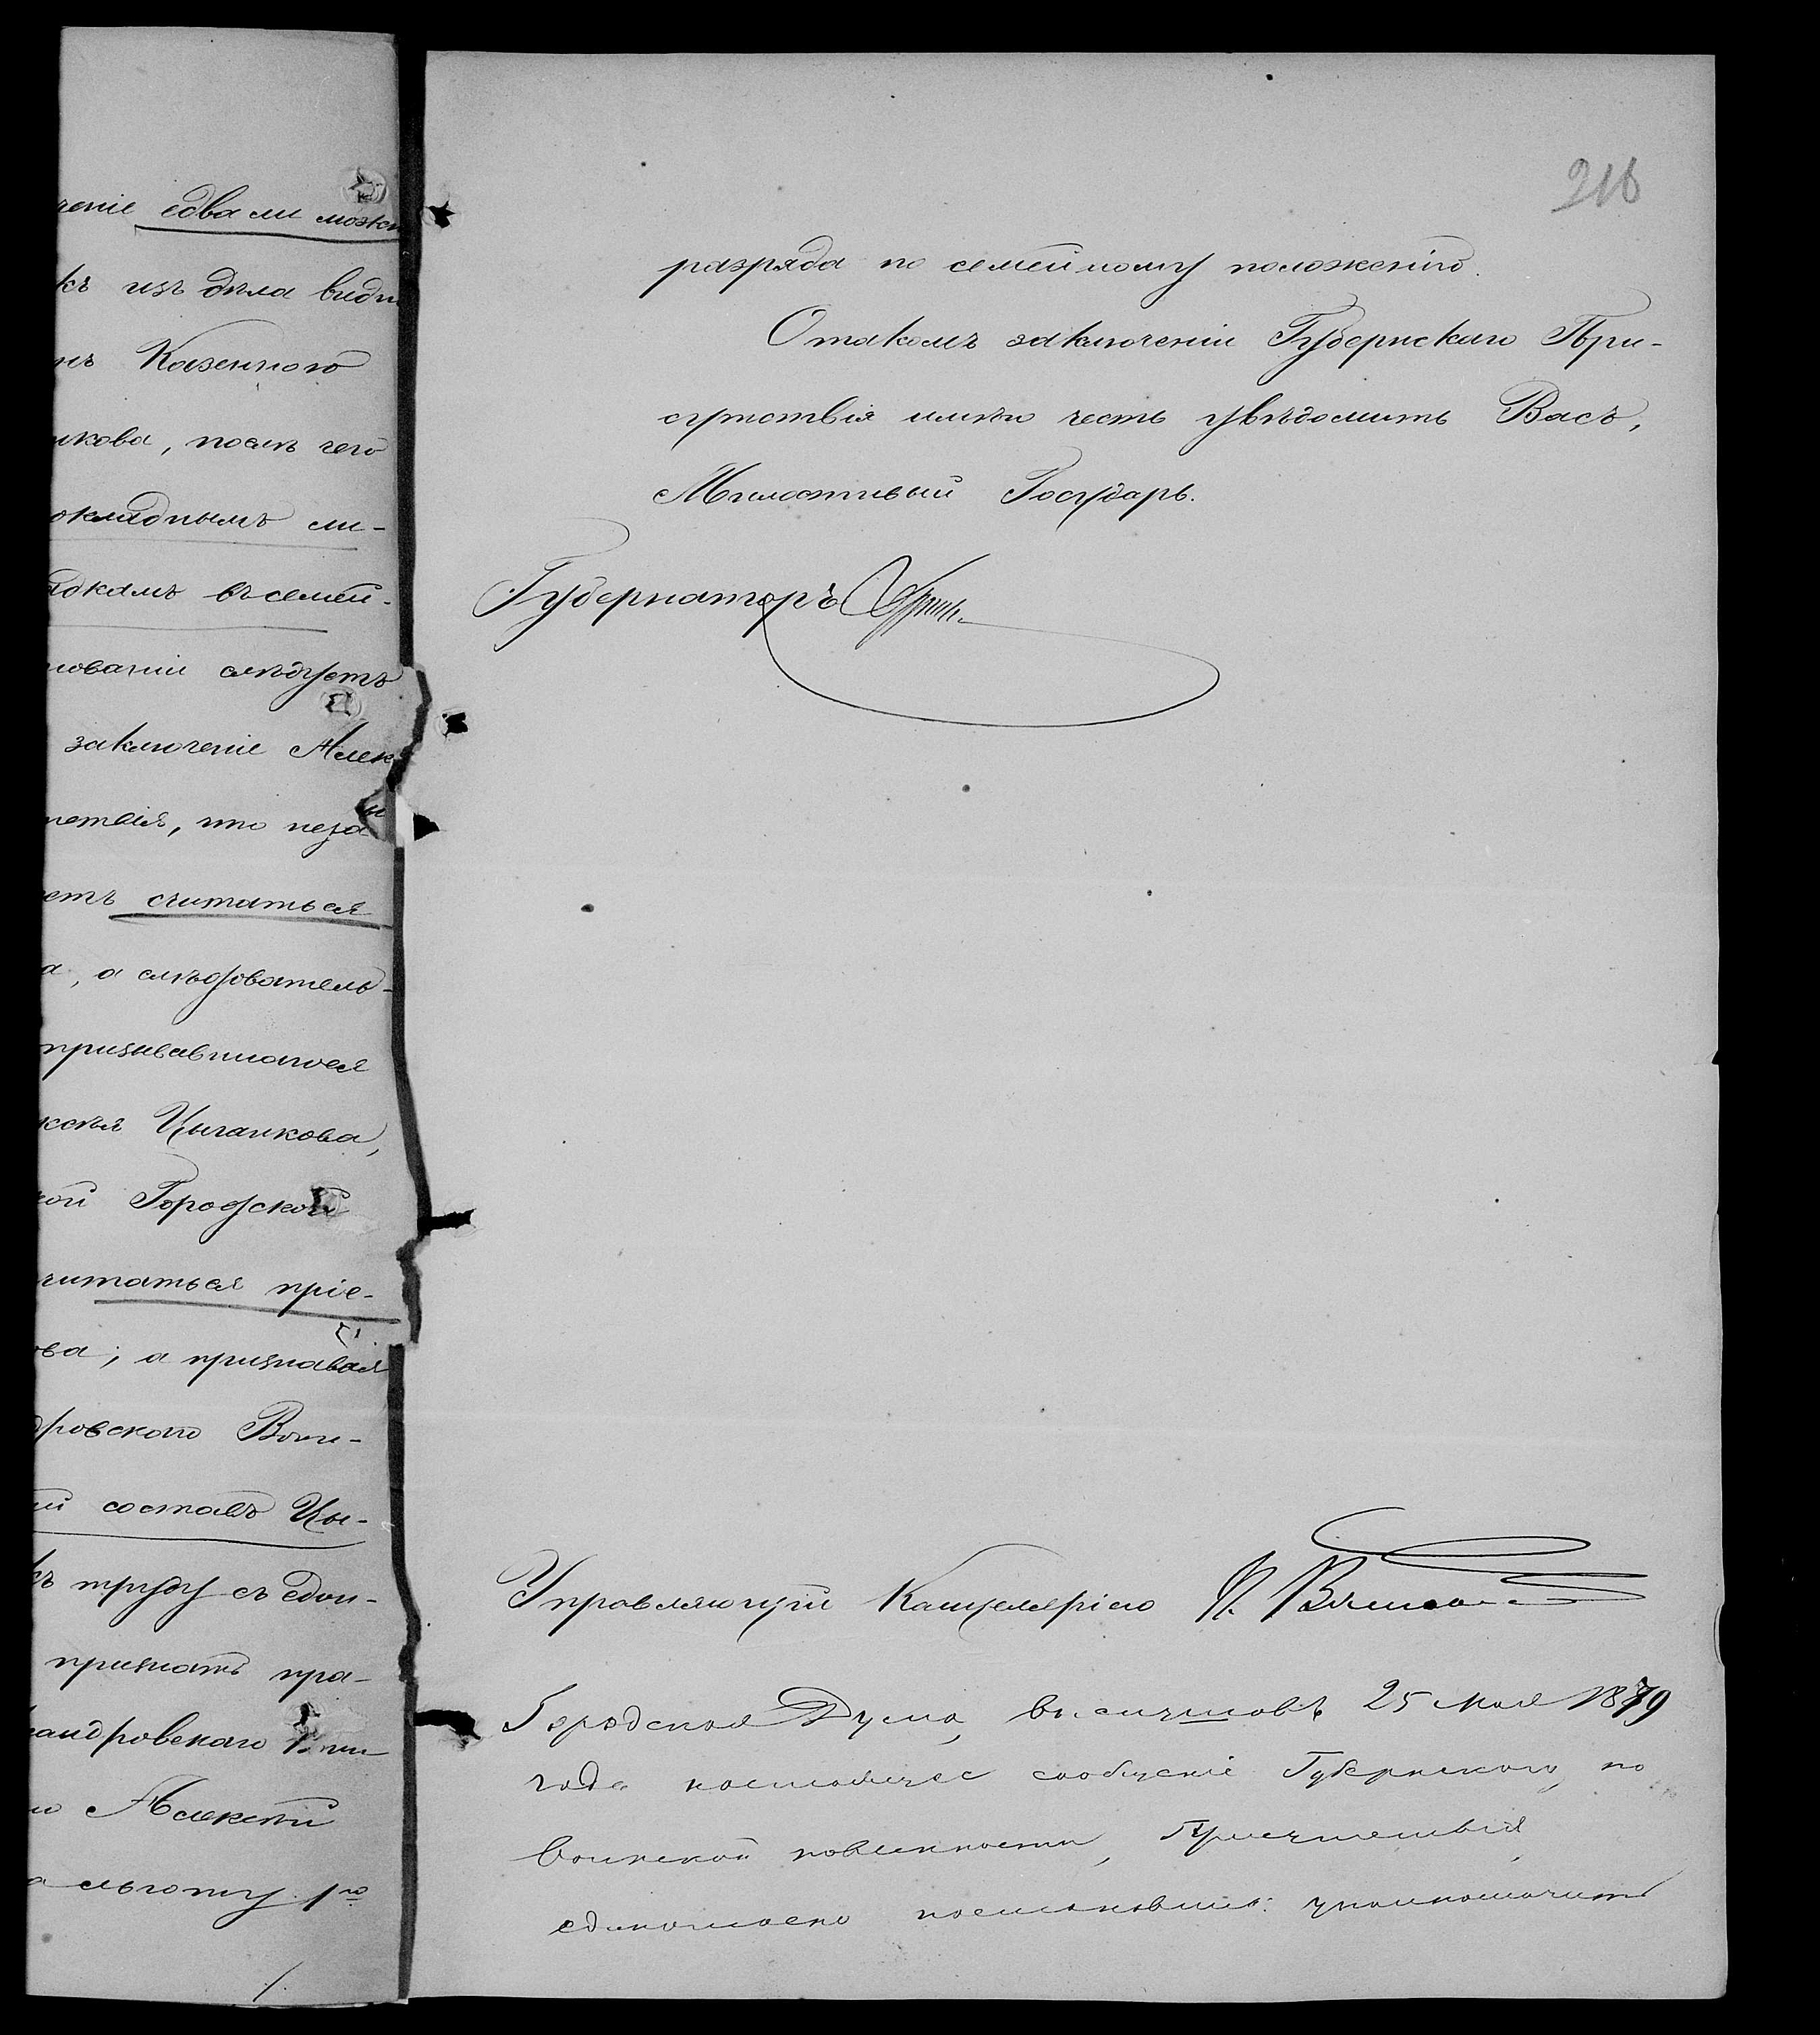 ченіе едва ли можн
къ изъ дѣла видн
нъ Казеннаго
икова, послѣ чего
окладнымъ ли-
ядкамъ въ семей-
новании слѣдуетъ
заключеніе Алек
тствія, что неза
етъ считаться
а, а слѣдователь-
призывавшагося
ксѣя Цыганкова,
кой Городской
читаться пріе-
ова; а признавая
дровскаго Воин-
ый составъ Цы-
къ труду съ едон-
признать пра-
сандровскаго Воин
Алексѣй
льготу 1го
216
разряда по семейному положенію.
О такомъ заключеніи Губернскаго При-
сутствія имѣю честь увѣдомить Васъ,
Милостивый Государь.
Губернаторъ
Управляющій Канцеляріею
Городская Дума, въ 25 Мая 1879
года сообщеніе Губернскаго, по
воинской повинности, Присутствія,
единогласно постановила: уполномочить